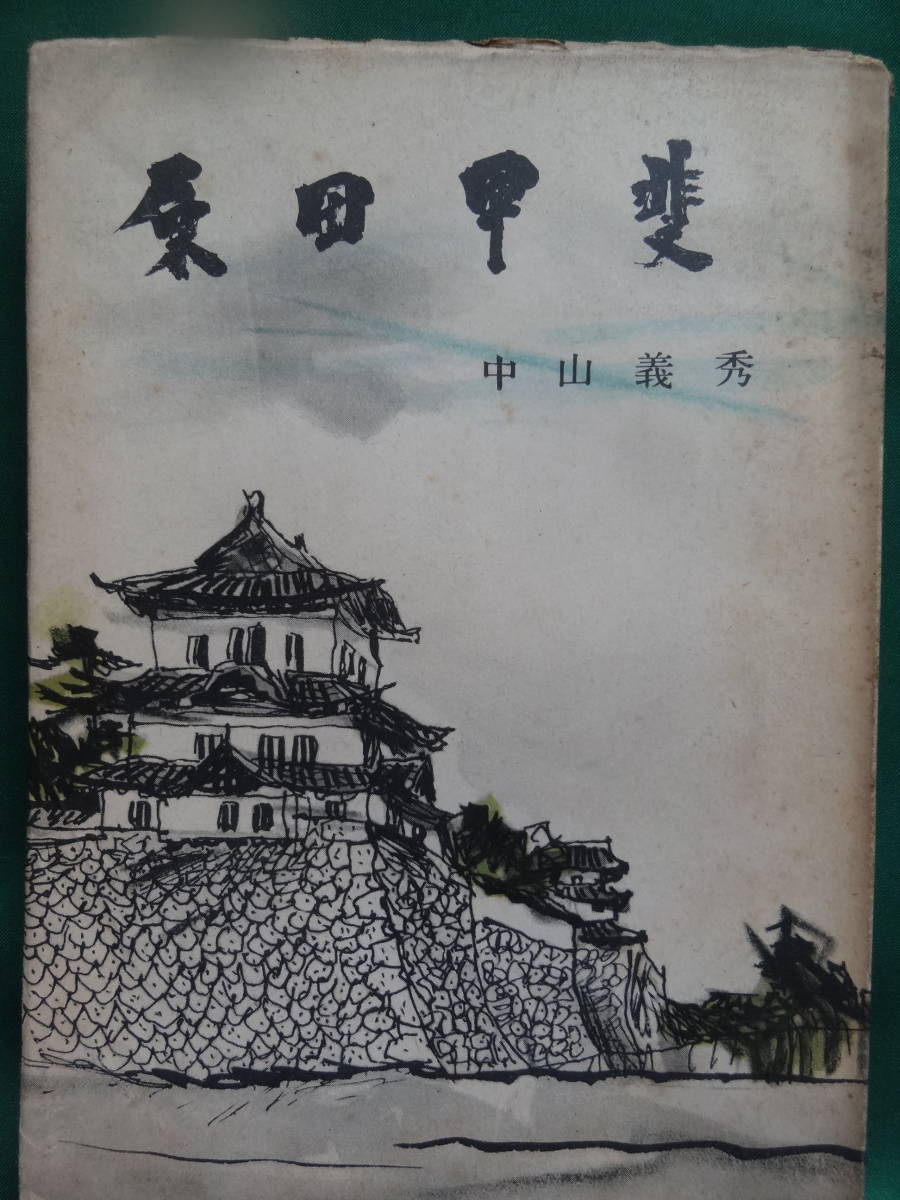 原田甲斐
中山義秀